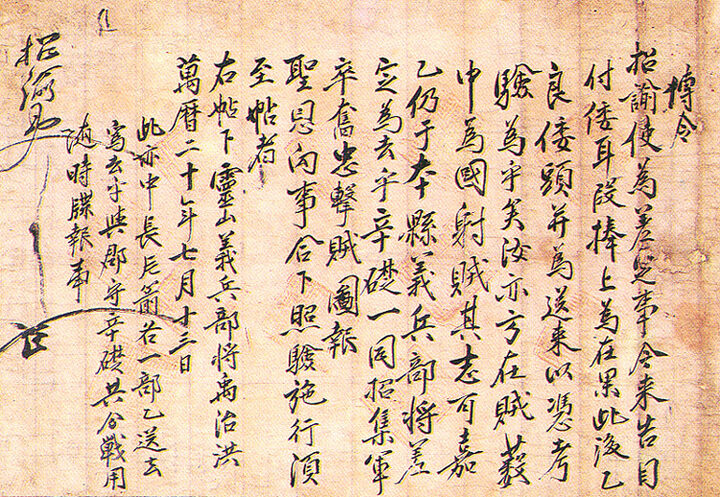 傳令
招諭使爲差定事今來告目
付倭耳段捧上爲在果此後乙
良倭頭幷爲送來以憑考
驗爲乎矣汝亦方在賊藪
中爲國射賊其志可嘉
乙仍于本縣義兵部將差
定爲去乎辛礎一同招集軍
卒奮忠擊賊圖報
聖恩向事合下照驗施行須
至帖者
右帖下靈山義兵部將禹治洪
萬曆二十年七月十三日
此亦中長片箭各一部乙送去
爲去乎與郡守辛礎共分戰用
隨時牒報事
招諭使